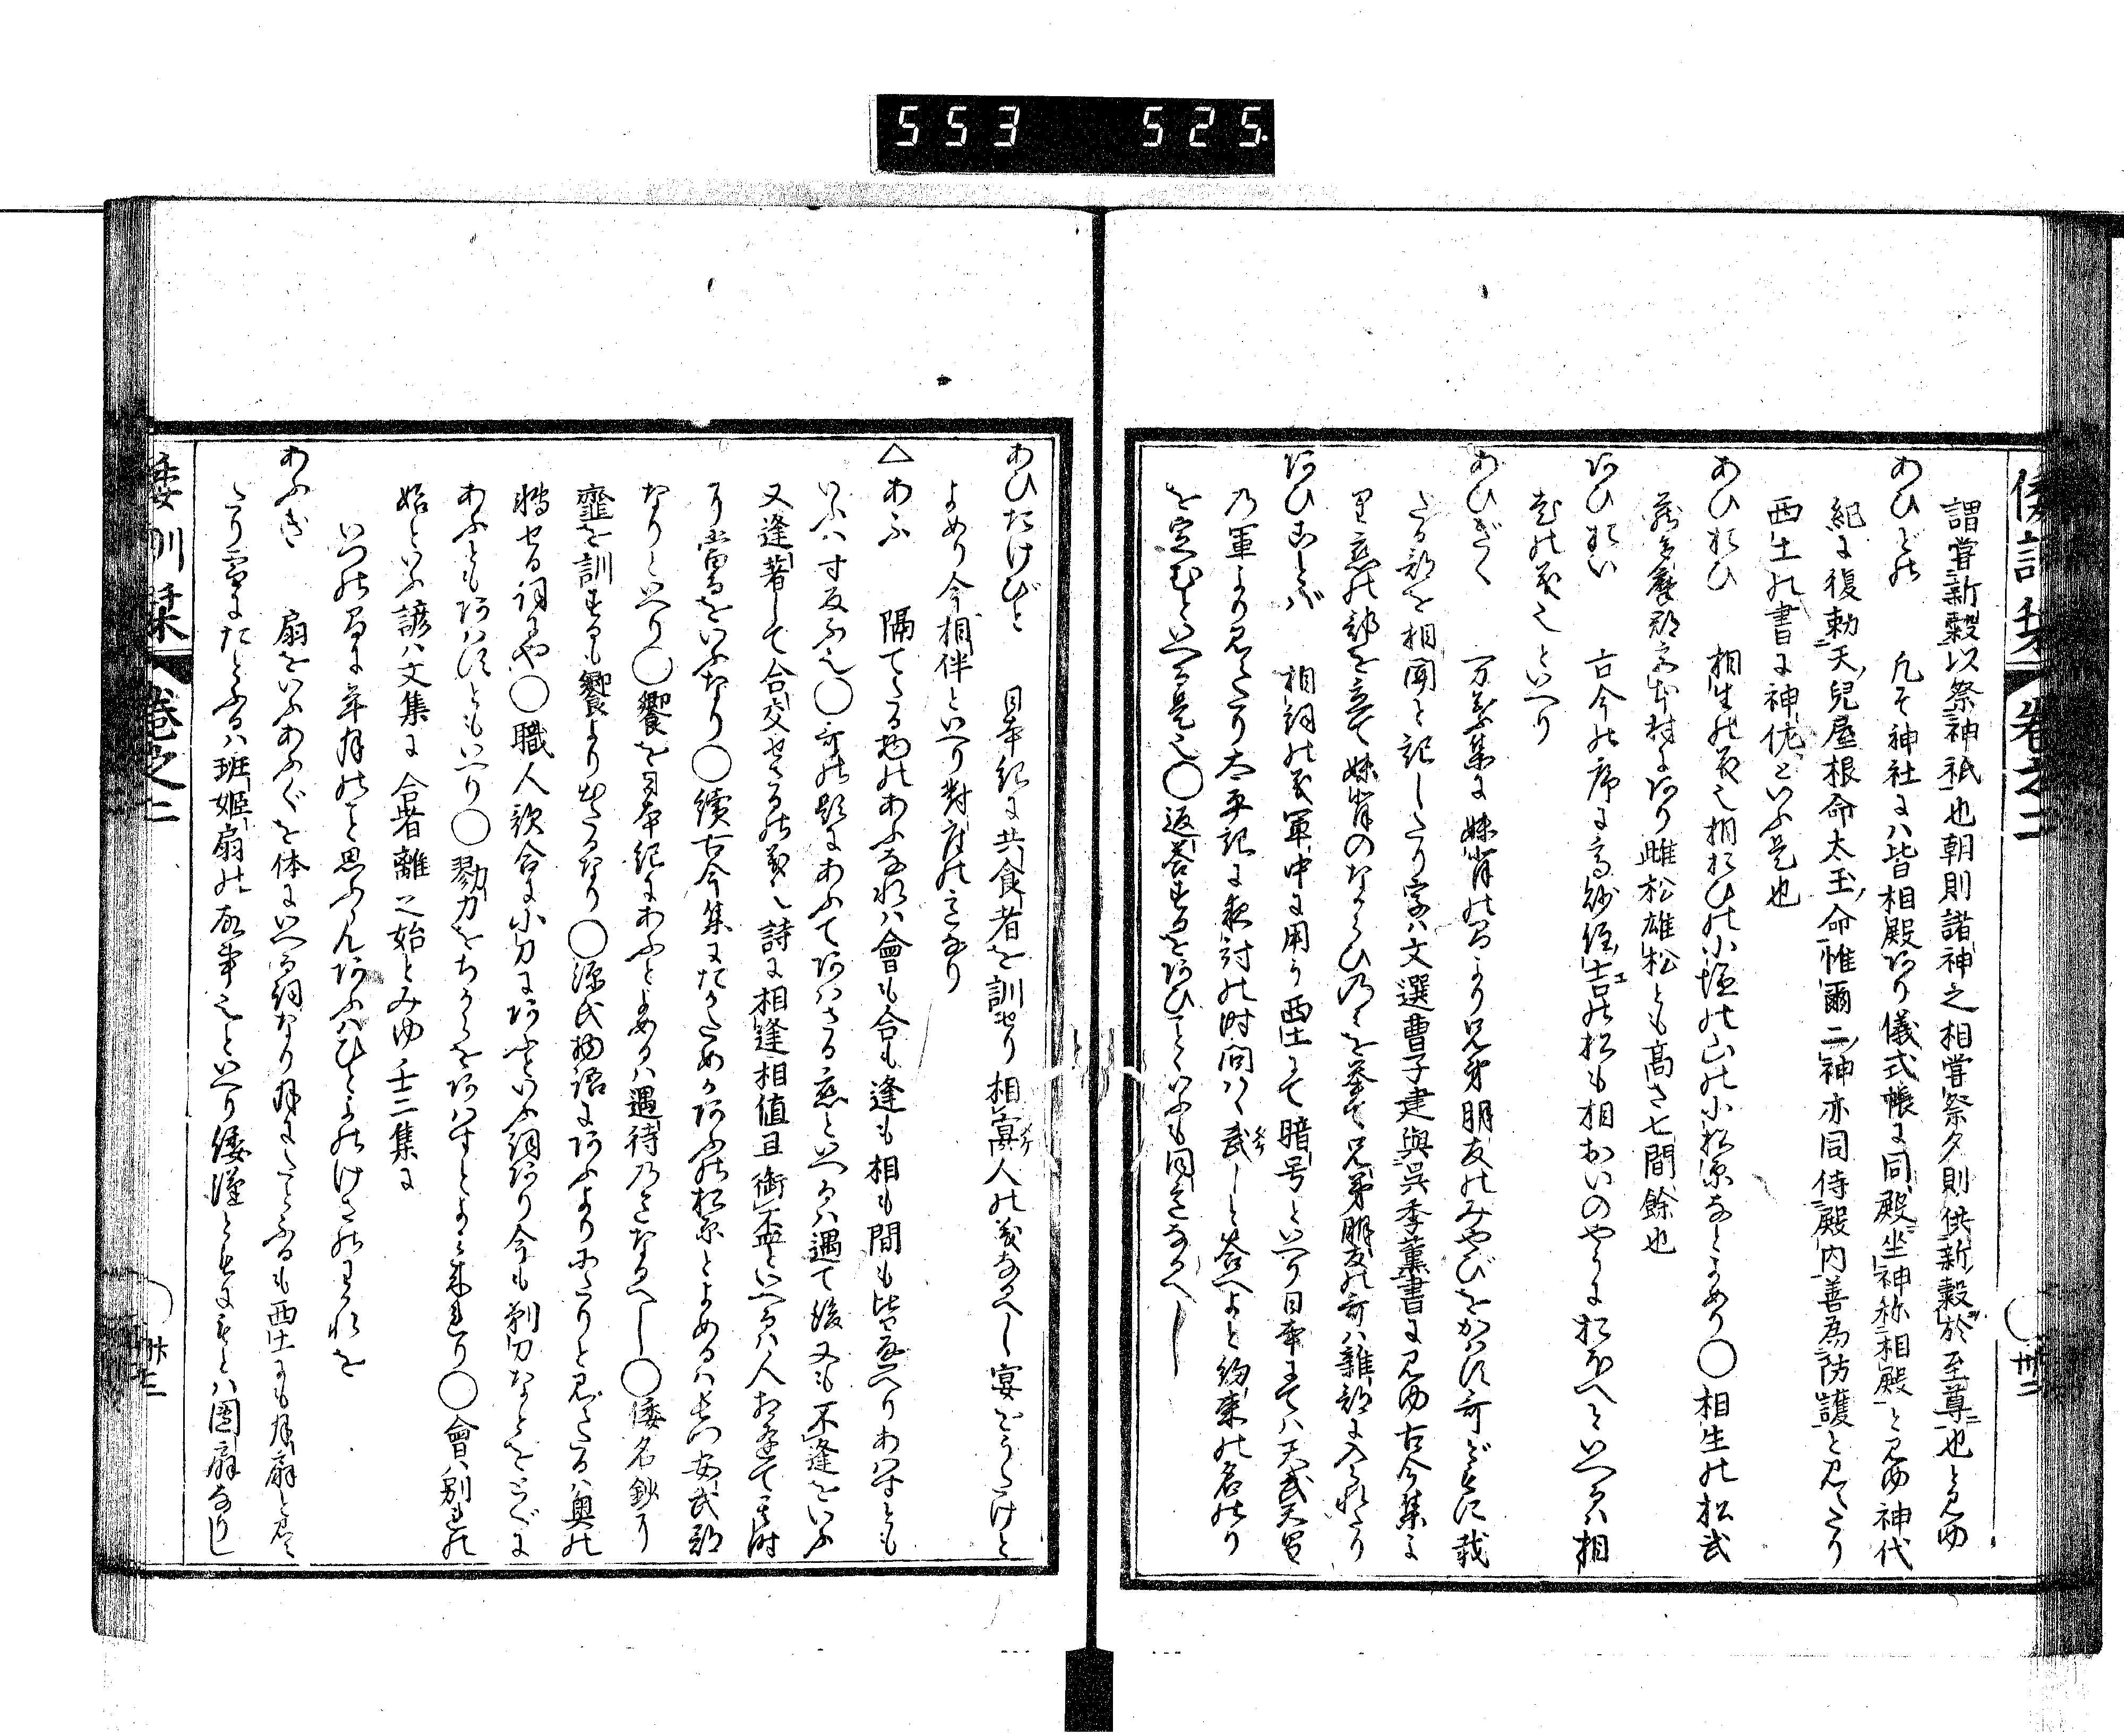 553 525.
倭訓栞 巻之二 卅二
謂嘗新穀以祭神祇也朝則諸神之相嘗祭夕則供新穀於至尊也と見ゆ
あひどの 凡そ神社には皆相殿あり儀式帳に同殿坐神称相殿と見ゆ神代
紀に復勅天児屋根命太玉命惟爾二神亦同侍殿内善為防護と見えたり
西土の書に神位といふ是也
あひおひ 相生の義也相おひの小塩の山の小松原なとよめり○相生の松武
蔵多磨郡宮村にあり雌松雄松とも高さ七間餘也
あひおい 古今の序に高砂住吉の松も相おいのやうにおほへといへるは相
老の義也といへり
あひぎく 万葉集に妹背の間より兄弟朋友のみやびをかはす哥どもに載
たる部を相聞と記したり字は文選曹子建與呉季重書に見ゆ古今集に
至り恋の部を立て妹背のならひ乃みを挙て兄弟朋友の哥は雑部に入られたり
あひことば 相詞の義軍中に用う西土にて暗号といへり日本にては天武天皇
乃軍より見えたり太平記に夜討の時問はゝ武しと答へよと約束の名のり
を定むといへる是也○返答するをあひことといふも同意なるへし
あひたけびと 日本紀に共食者を訓せり相宴人の義なるへし宴をうたけと
よめり今相伴といへり対座の意なり
△あふ 隔てたる物のあふなれは會も合も逢も相も間も皆かへりあはすとも
いふはす反ふ也○哥の題にあふてあはさる恋といへるは遇て後又も不逢をいふ
又逢着して合交せさるの義也詩に相逢相値且銜盃といへるは人お逢て其時
に當るをいふなり○續古今集にたかためかあふの松原とよめるは長門安武郡
なりといへり○饗を日本紀にあふとよめるは遇待乃意なるへし○倭名鈔に
韲を訓するも饗より出たるなり○源氏物語にあふよりにたりと見えたるは奥の
轉せる詞にや○職人歌合に小刀にあふといふ詞あり今も剃刀なとをとぐに
あふともあはすともいへり○勠力をちからをあはすとよみ来れり○會は別れの
始といふ諺は文集に合者離之始とみゆ壬二集に
いつの間に年月のみと思ふらんあふはひとよのけさのわかれを
あふぎ 扇をいふあふぐを体にいへる詞なり月にたとふるも西土にも月扇と見え
たり雪にたとふるは班姫扇の故事也といへり倭漢ともにもとは團扇なりし
倭訓栞 巻之二 卅三